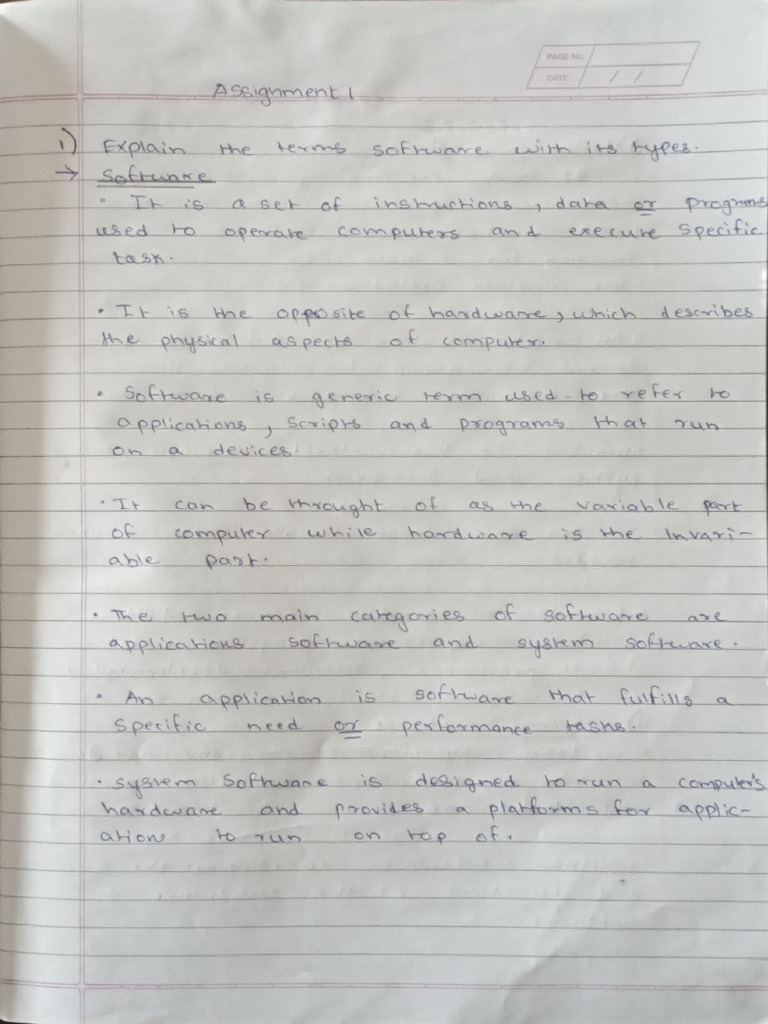 PAGE No.
DATE / /
Assignment 1
1) Explain the terms software with its types.
→ Software
• It is a set of instructions, data or programs
used to operate computers and execute specific
task.
• It is the opposite of hardware, which describes
the physical aspects of computer.
• Software is generic term used to refer to
applications, scripts and programs that run
on a devices.
• It can be throught of as the variable part
of computer while hardware is the Invari-
able part.
• The two main categories of software are
applications software and system software.
• An application is software that fulfills a
specific need or performance tasks.
• System Software is designed to run a computer's
hardware and provides a platforms for applic-
ations to run on top of.